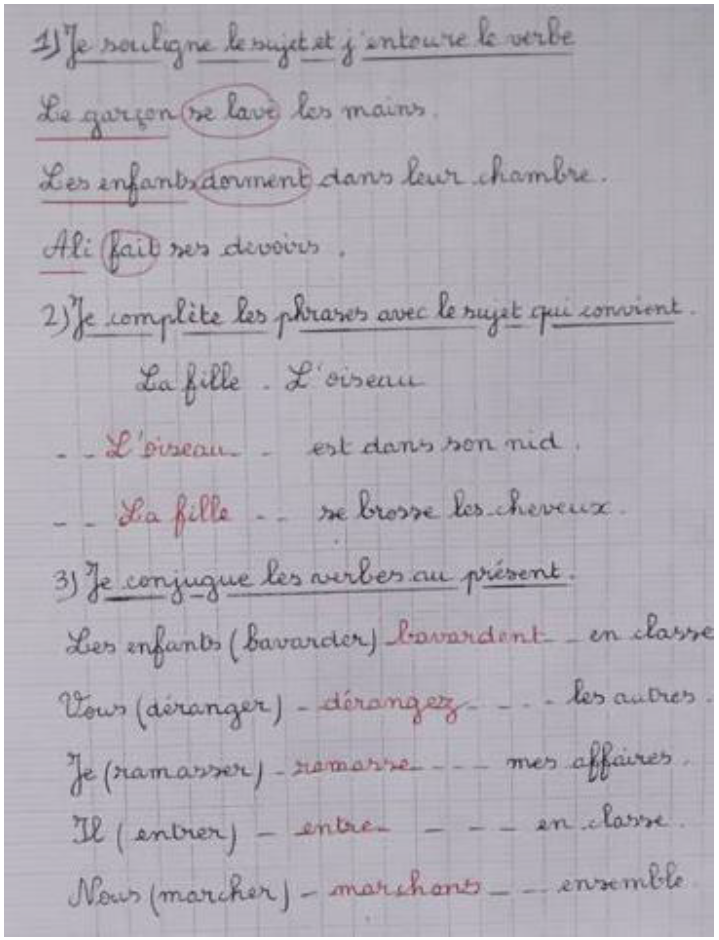 1) Je souligne le sujet et j'entoure le verbe
Le garçon se lave les mains.
Les enfants dorment dans leur chambre.
Ali fait ses devoirs.
2) Je complète les phrases avec le sujet qui convient.
La fille - L'oiseau
-- L'oiseau -- est dans son nid.
-- La fille -- se brosse les cheveux.
3) Je conjugue les verbes au présent.
Les enfants (bavarder) bavardent - en classe
Vous (déranger) - dérangez - - - les autres.
Je (ramasser) - ramasse - - - mes affaires.
Il (entrer) - entre - - - - en classe.
Nous (marcher) - marchons - - ensemble